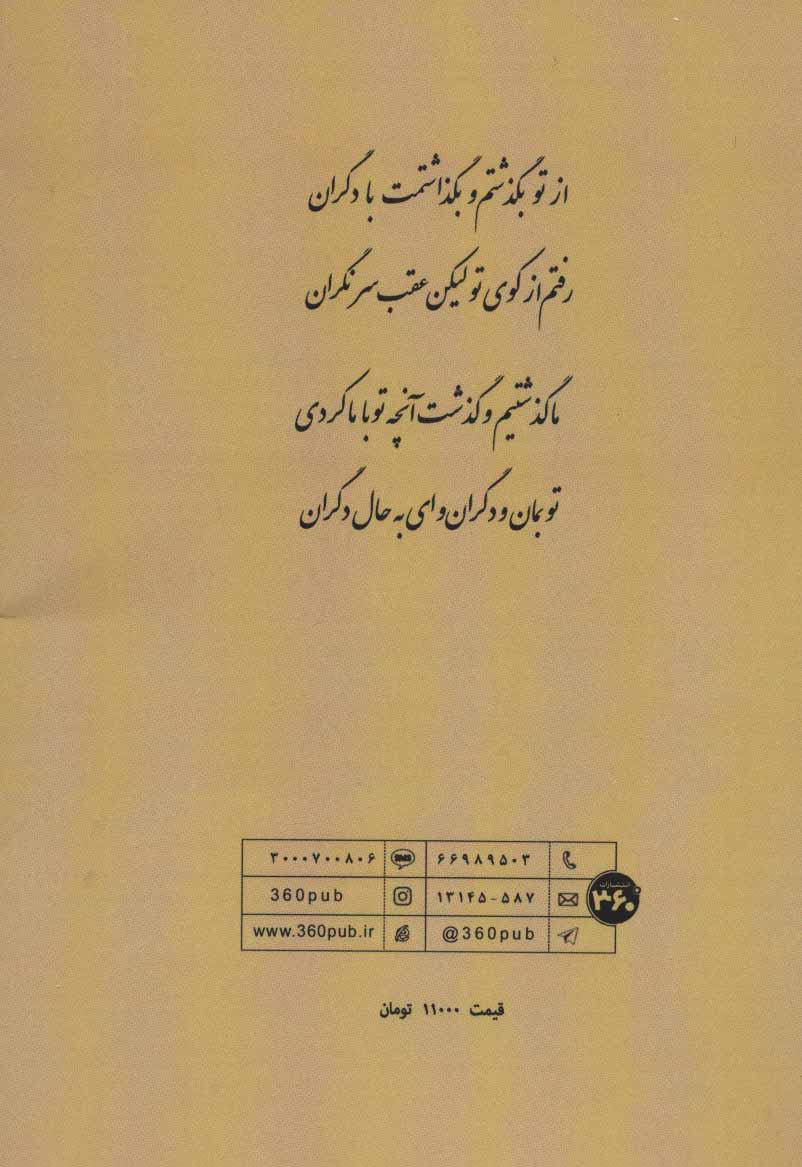 از تو بگذشتم و بگذاشتمت با دگران
رفتم از کوی تو لیکن عقب سر نگران
ما گذشتیم و گذشت آنچه تو با ما کردی
تو بمان و دگران وای به حال دگران
۶۶۹۸۹۵۰۳ SMS ۳۰۰۰۷۰۰۸۰۶
انتشارات ۳۶۰
۱۳۱۴۵-۵۸۷ 360pub
@360pub www.360pub.ir
قیمت ۱۱۰۰۰ تومان